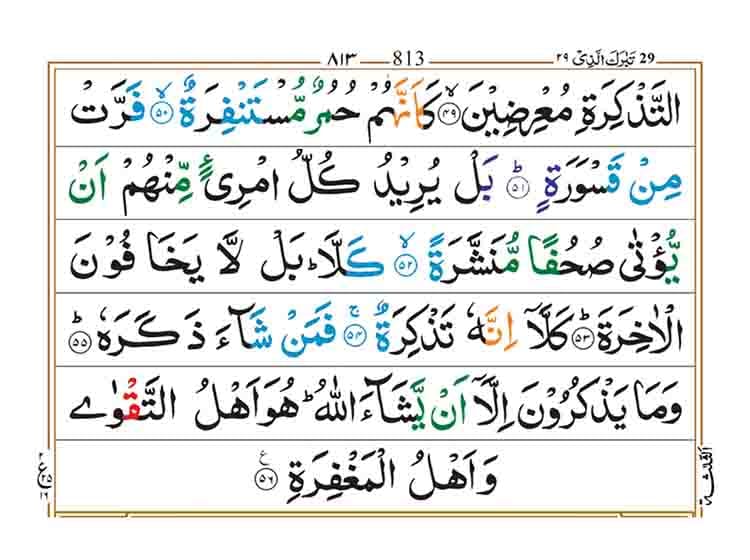 29 تَبٰرَكَ الَّذِیْ ٢٩ 813 ٨١٣
التَّذْكِرَةِ مُعْرِضِیْنَ ۙ﴿۴۹﴾ كَاَنَّهُمْ حُمُرٌ مُّسْتَنْفِرَةٌ ۙ﴿۵۰﴾ فَرَّتْ
مِنْ قَسْوَرَةٍ ؕ﴿۵۱﴾ بَلْ یُرِیْدُ كُلُّ امْرِئٍ مِّنْهُمْ اَنْ
یُّؤْتٰی صُحُفًا مُّنَشَّرَةً ۙ﴿۵۲﴾ كَلَّا ؕ بَلْ لَّا یَخَافُوْنَ
الْاٰخِرَةَ ؕ﴿۵۳﴾ كَلَّاۤ اِنَّهٗ تَذْكِرَةٌ ۚ﴿۵۴﴾ فَمَنْ شَآءَ ذَكَرَهٗ ؕ﴿۵۵﴾
وَمَا یَذْكُرُوْنَ اِلَّاۤ اَنْ یَّشَآءَ اللّٰهُ ؕ هُوَ اَهْلُ التَّقْوٰی
وَاَهْلُ الْمَغْفِرَةِ ﴿۵۶﴾ ع